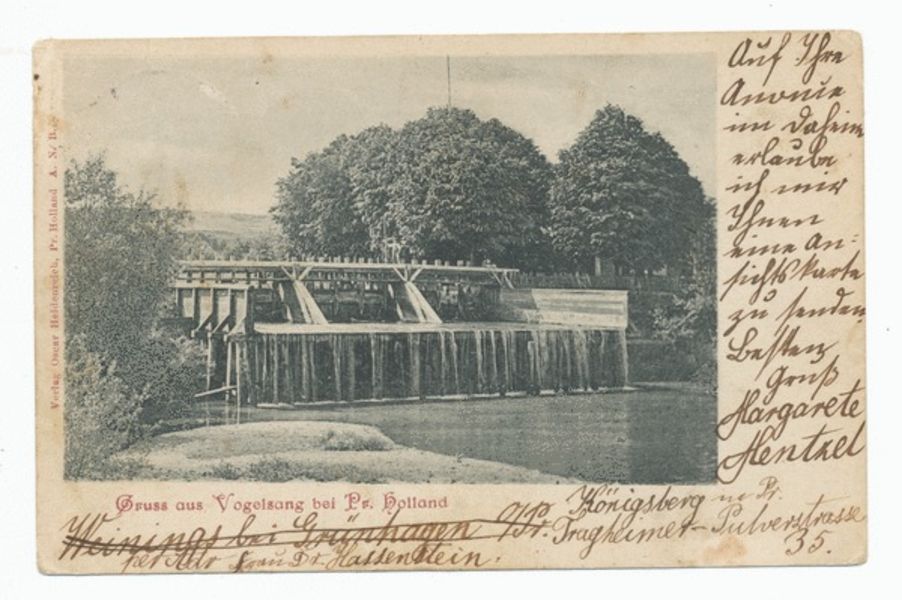 Auf Ihre
Anonce
im Daheim
erlaube
ich mir
Ihnen
eine An=
sichtskarte
zu senden.
Besten
Gruß
Margarete
Hentzel
Verlag Oscar Heidenreich, Pr. Holland A. N. B.
Gruss aus Vogelsang bei Pr. Holland
Weinings bei Grünhagen O/Pr.
per Adr Frau Dr. Hassenstein.
Königsberg in Pr.
Tragheimer-Pulverstrasse
35.